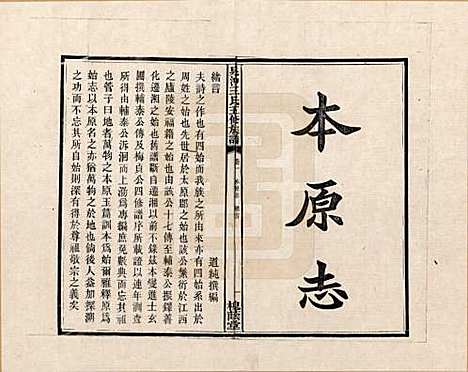 本原志
王氏五修族譜
槐蔭堂
緒言
道純撰編
夫詩之作也有四始而我族之所由來亦有四始系出於
周姓之始也先世居太原郡之始也該公㳺衍於江西
之廬陵安福籍之始也由該公十七傳至輔泰公振鐸善
化遷湘之始也舊譜斷自遷湘以前不錄茲本變進士玄
同撰輔泰公傳及梅貞公四修譜序所載證以連年調查
所得由輔泰公泝洄而上湯為專編庶免數典而忘其祖
也管子曰地者萬物之本原玉篇訓本為始爾雅釋原為
始志以本原名之亦猶萬物之於地也倘後人益加探溯
之功而不忘其所自始則深有得於尊祖敬宗之義矣